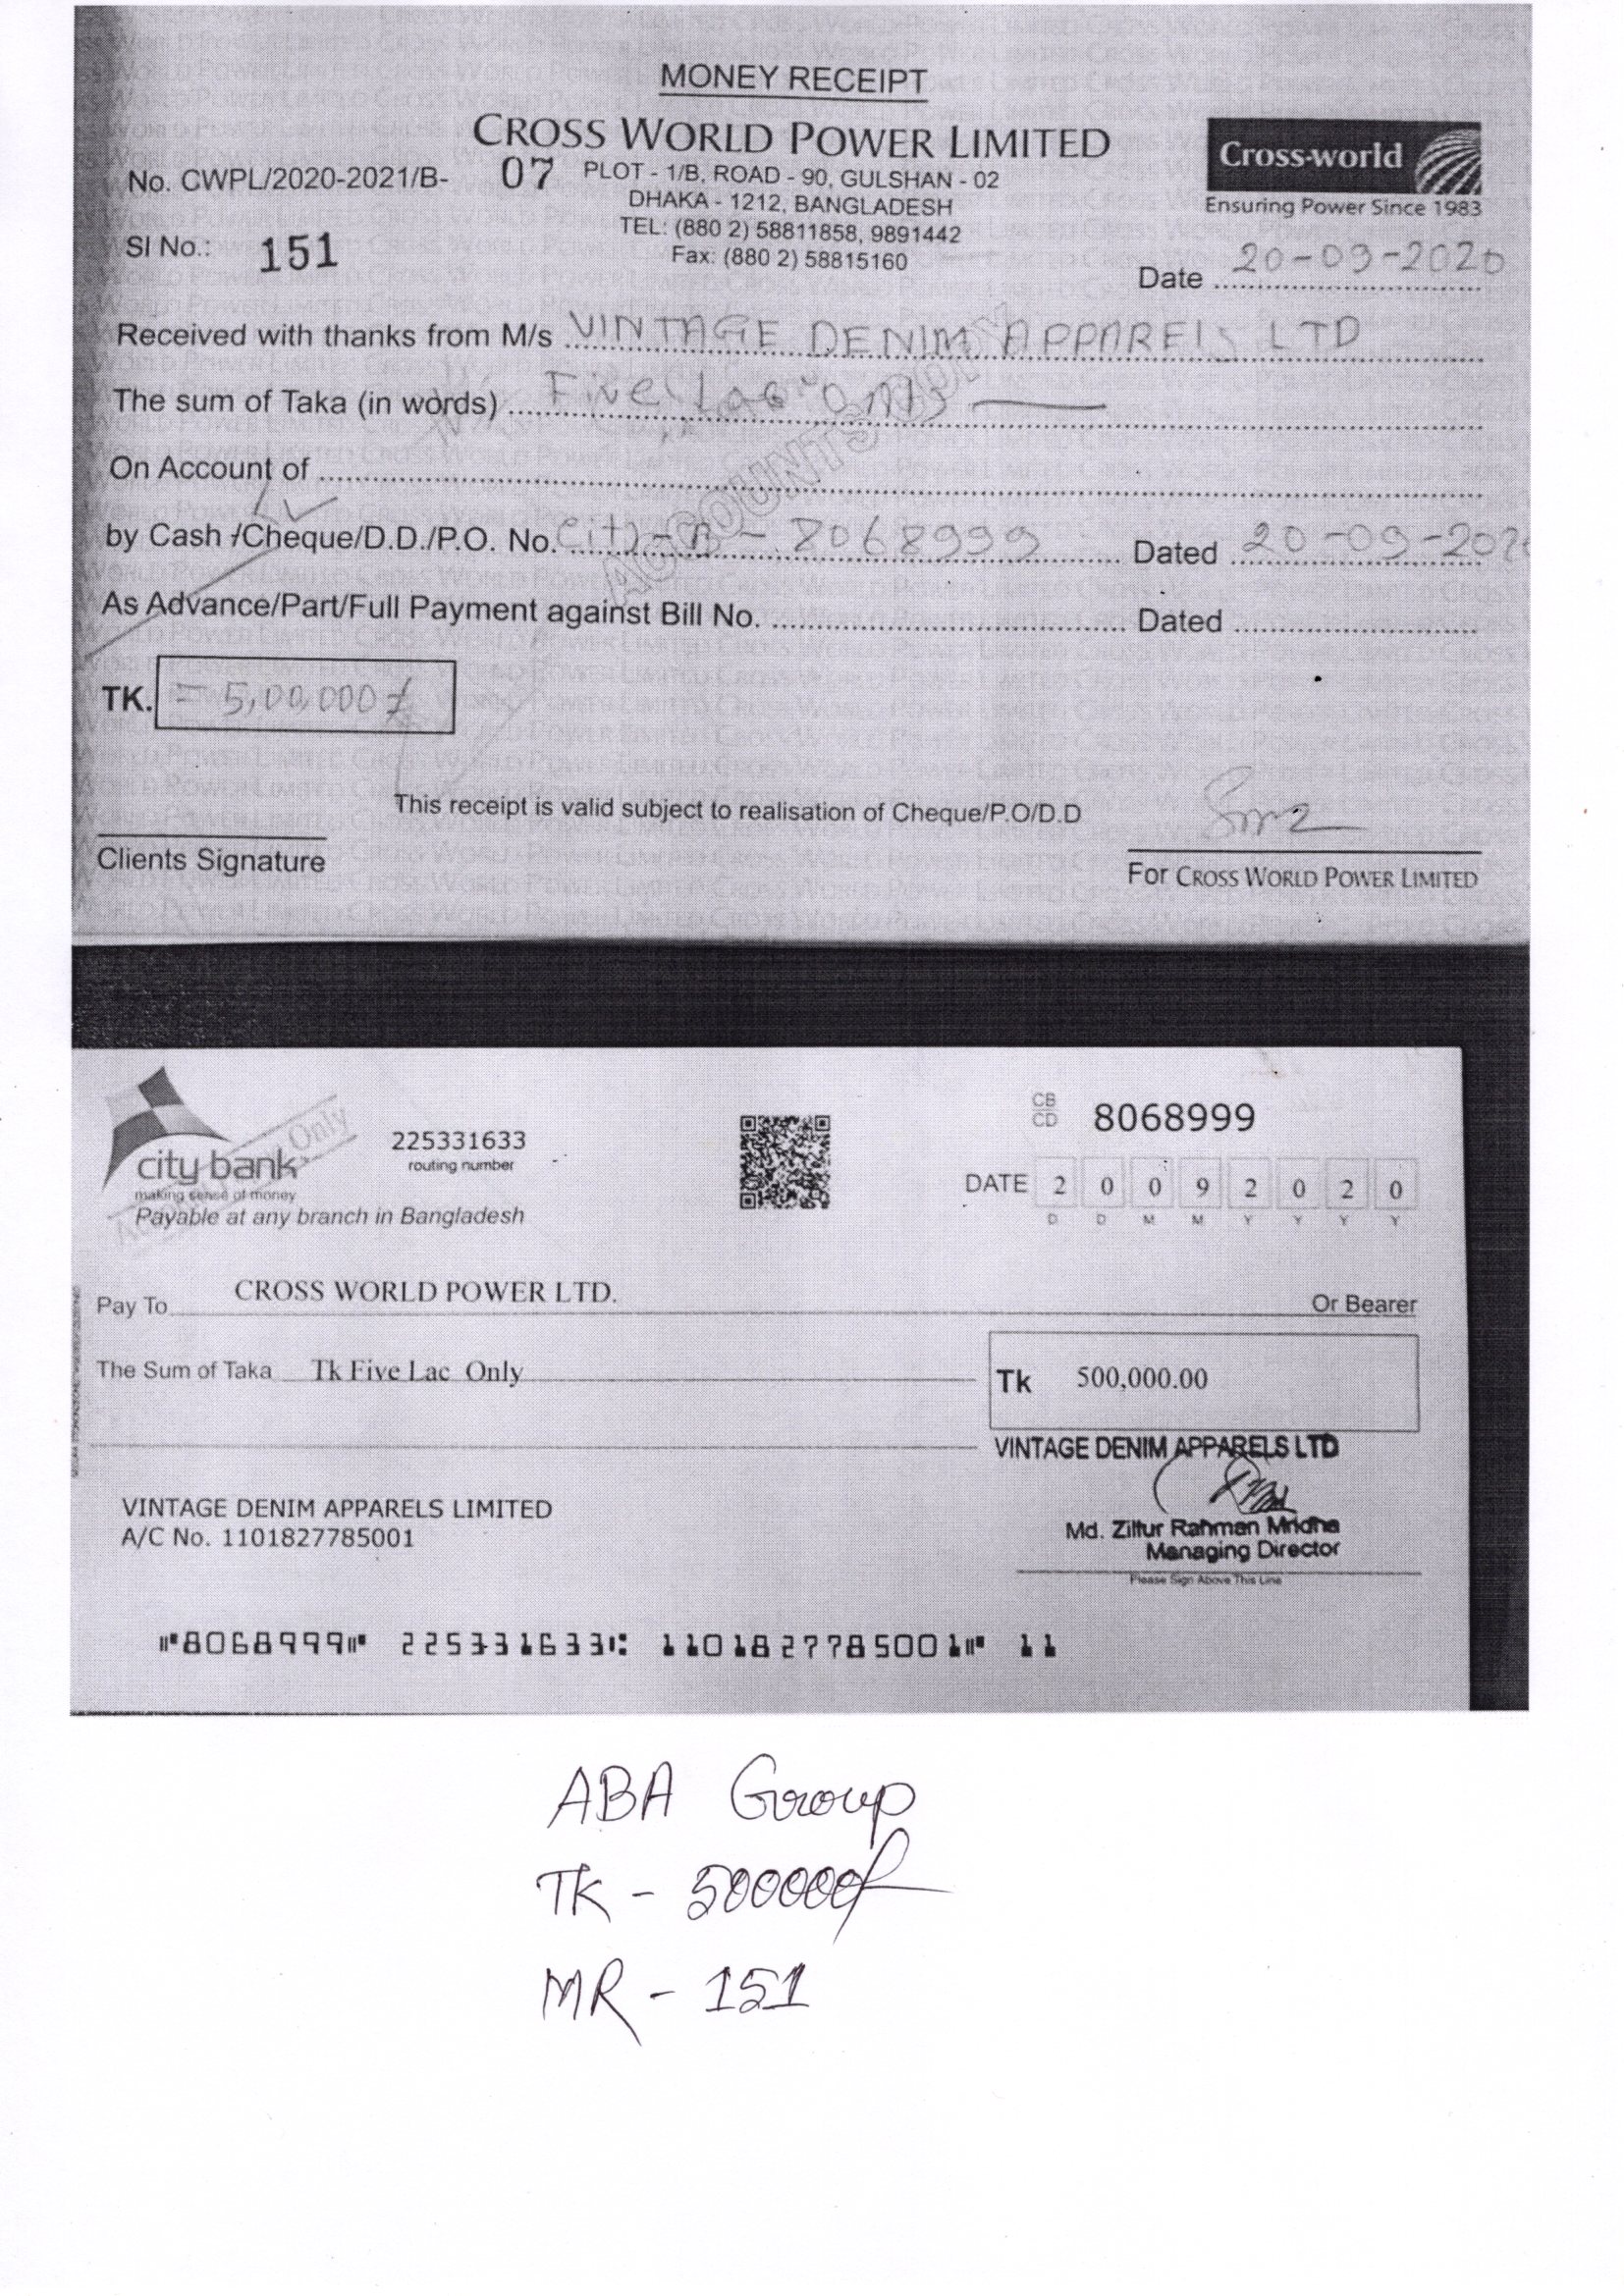 MONEY RECEIPT
CROSS WORLD POWER LIMITED
No. CWPL/2020-2021/B- 07
PLOT - 1/B, ROAD - 90, GULSHAN - 02
DHAKA - 1212, BANGLADESH
TEL: (880 2) 58811858, 9891442
Fax: (880 2) 58815160
Cross-world
Ensuring Power Since 1983
SI No.: 151
Date 20-09-2020
Received with thanks from M/s VINTAGE DENIM APPARELS LTD
The sum of Taka (in words) Five Lac Only
On Account of
by Cash /Cheque/D.D./P.O. No. City-B - 8068999 Dated 20-09-202
As Advance/Part/Full Payment against Bill No. Dated
TK. = 5,00,000/=
This receipt is valid subject to realisation of Cheque/P.O/D.D
Clients Signature
For CROSS WORLD POWER LIMITED
city bank
making sense of money
Payable at any branch in Bangladesh
225331633
routing number
CB
CD
8068999
DATE 2 0 0 9 2 0 2 0
D D M M Y Y Y Y
Pay To CROSS WORLD POWER LTD. Or Bearer
The Sum of Taka Tk Five Lac Only
Tk 500,000.00
VINTAGE DENIM APPARELS LTD
Md. Zillur Rahman Mridha
Managing Director
Please Sign Above This Line
VINTAGE DENIM APPARELS LIMITED
A/C No. 1101827785001
8068999 225331633 1101827785001 11
ABA Group
TK - 500000/-
MR - 151